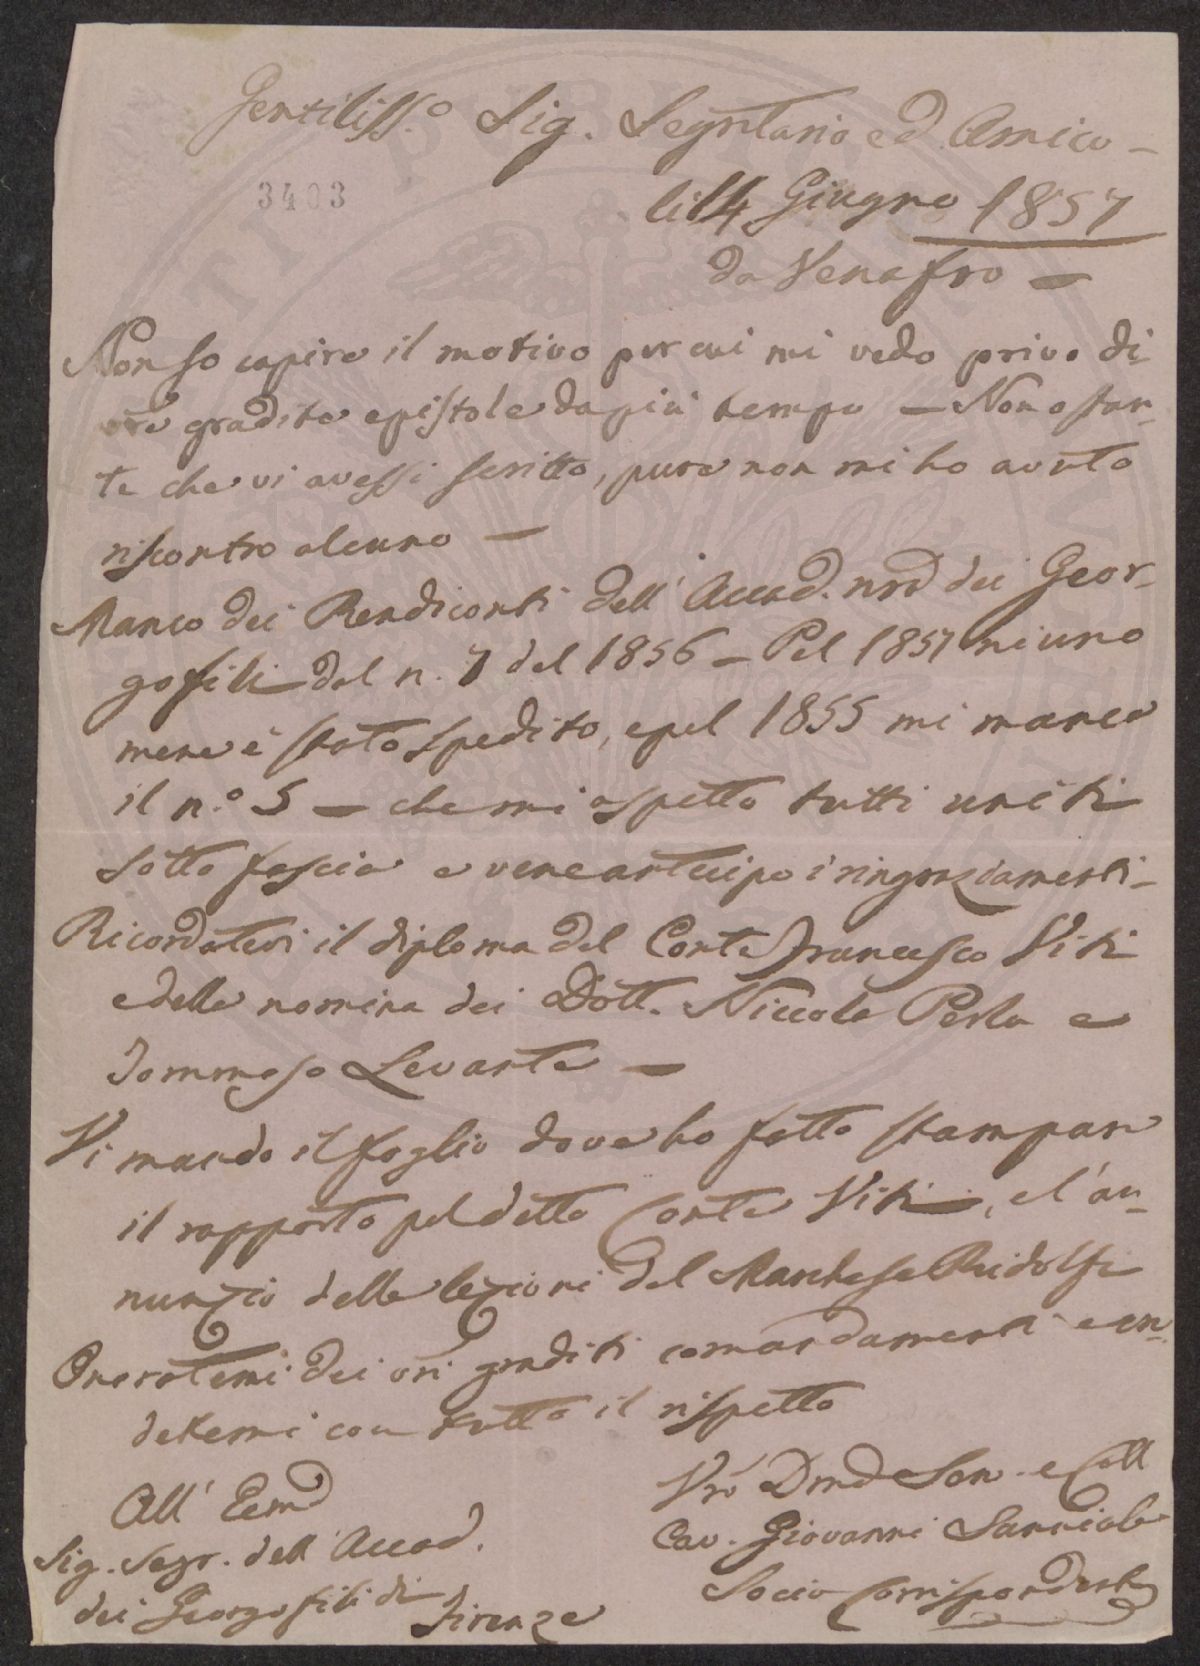 Gentiliss.o Sig. Segretario ed Amico -
3403
li 14 Giugno 1857
da Venafro -
Non so capire il motivo per cui mi vedo privo di
vre gradite epistole da più tempo - Non ostan-
te che vi avessi scritto, pure non mi ho avuto
riscontro alcuno -
Manco dei Rendiconti dell' Accad. dei Geor-
gofili del n. 7 del 1856 - Pel 1857 niuno
mene è stato spedito, e pel 1855 mi manca
il n.o 5 - che mi aspetto tutti uniti
sotto fascia e vene anticipo i ringraziamenti -
Ricordatevi il diploma del Conte Francesco Viti
e delle nomina dei Dott. Niccola Perla e
Tommaso Levante -
Vi mando il foglio dove ho fatto stampare
il rapporto pel detto Conte Viti, e l'an-
nunzio delle lezioni del Marchese Ridolfi
Onoratemi dei vri graditi comandamenti e cre-
detemi con tutto il rispetto
Vro Dmo Ser. e Coll
Cav. Giovanni Sannicola
Socio Corrispondente
All' Ecmo
Sig. Segr. dell' Accad.
dei Georgofili di
Firenze